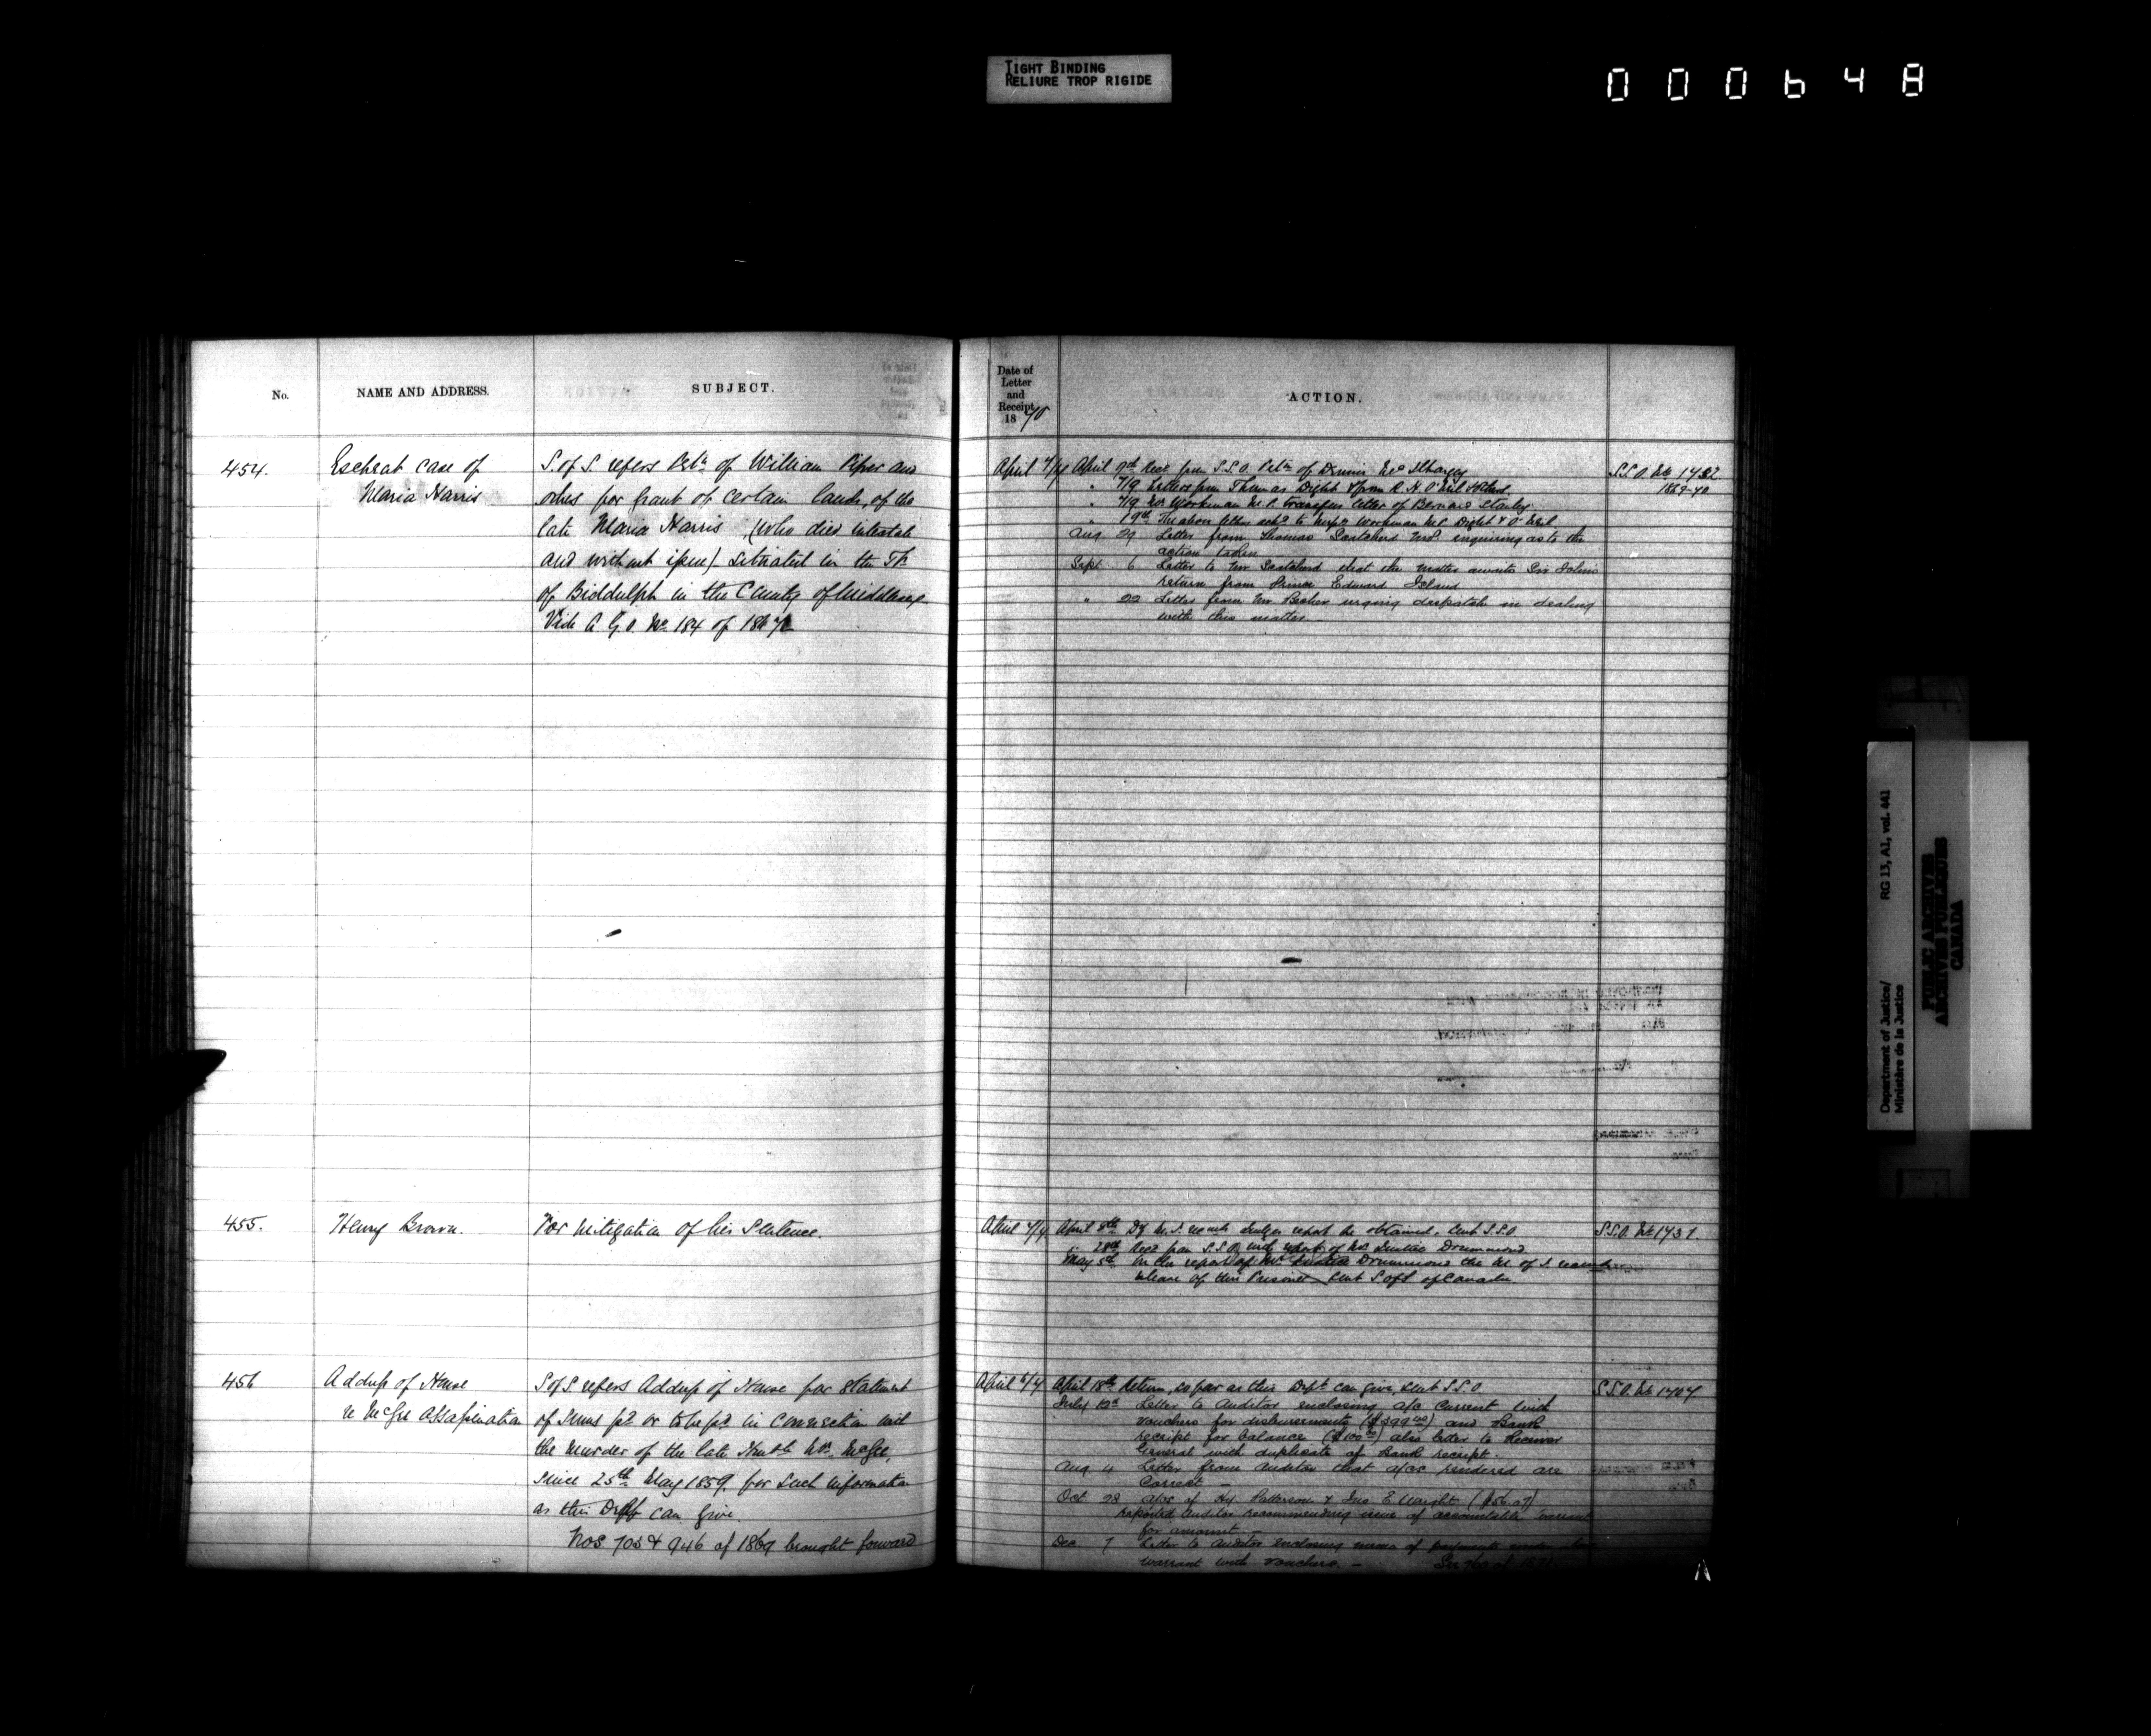 TIGHT BINDING
RELIURE TROP RIGIDE
000648
No.
NAME AND ADDRESS.
SUBJECT.
454.
Escheat case of
Maria Harris
S. of S. refers Petn of William Piper and
others for grant of certain lands, of the
late Maria Harris, (who died intestate
and without issue) situated in the Tp
of Biddulph in the County of Middlesex
Vide A.G.O. No 184 of 1867
455.
Henry Brown.
For mitigation of his Sentence.
456
Address of House
re McGee Assassination
S of S refers Address of House for statement
of sums pd or to be pd in connection with
the murder of the late Honble Mr. McGee,
since 25th May 1859, for such information
as this Dept can give.
Nos 705 & 946 of 1869 brought forward
Date of
Letter
and
Receipt
1870
ACTION.
April 7/4 April 9th Recd from S.S.O. Petn of Dennis
" 7/9 Letters from Thomas Dight & from R. H. O'Neil
" 7/9 Mr Workman M.P. transfers letter of Bernard Stanley
" 19th The above letters to Messrs Workman M.P. Dight & O'Neil
Aug 29 Letter from Thomas Scatcherd M.P. enquiring as to the
action taken
Sept 6 Letter to Mr Scatcherd that the matter awaits Sir John's
return from Prince Edward Island
" 22 Letter from Mr Becher urging despatch in dealing
with this matter
S.S.O. No 1732
1869-70
April 7/4 April 8th Dy M.J. recomds Judges report be obtained. Sent S.S.O.
" 28th Recd from S.S.O. with report of Mr Justice Drummond
May 5th On the report of Mr Justice Drummond the M of J. recomds
release of this Prisoner Sent S of S of Canada
S.S.O. No 1731
April 7/4 April 18th Return, so far as this Dept can give, sent S.S.O.
July 12th Letter to Auditor enclosing a/c Current with
vouchers for disbursements and Bank
receipt for balance also letter to Receiver
General with duplicate of Bank receipt
Aug 4 Letter from Auditor that a/cs rendered are
Correct
Oct 28 a/cs of Hy. Patterson &
reported Auditor recommending issue of accountable warrant
for amount
Dec 7 Letter to Auditor enclosing memo of payments under
warrant with vouchers.
S.S.O. No 1704
Department of Justice/
Ministère de la Justice
RG 13, A1, vol. 441
PUBLIC ARCHIVES
ARCHIVES PUBLIQUES
CANADA